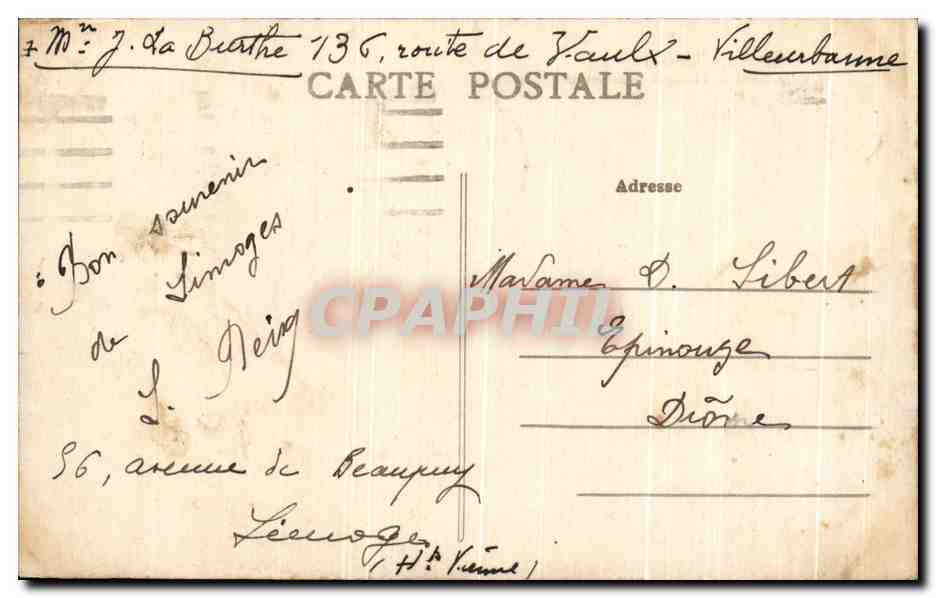 Mr. J. La Burthe 136, route de Vaulx - Villeurbanne
CARTE POSTALE
Bon souvenir
de Limoges
L.
56, avenue de Beaupuy
Limoges
(Hte Vienne)
Adresse
Madame D. Sibert
Epinouze
Drôme
CPAPHIL